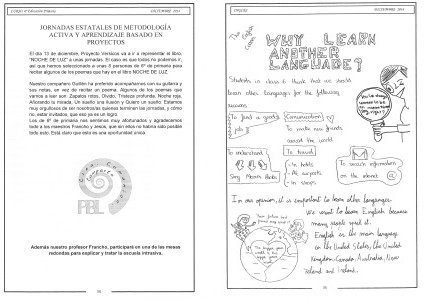 JORNADAS ESTATALES DE METODOLOGÍA
ACTIVA Y APRENDIZAJE BASADO EN
PROYECTOS
El día 13 de diciembre, Proyecto Versicos va a ir a representar el libro,
"NOCHE DE LUZ" a unas jornadas. El caso es que todos no podemos ir,
así que hemos seleccionado a unas 8 personas de 6º de primaria para
recitar algunos de los poemas que hay en el libro NOCHE DE LUZ.
Nuestro compañero Guillén ha preferido acompañarnos con su guitarra y
sus notas, en vez de recitar un poema. Algunos de los poemas que
vamos a leer son: Zapatos rotos, Olvido, Tristeza profunda, Noche roja,
Añorando tu mirada, Un sueño una ilusión y Quiero un sueño. Estamos
muy orgullosos de ser nosotros/as quienes terminen las jornadas, y cómo
no, estar invitados, que eso ya es un logro.
Los de 6º de primaria nos sentimos muy afortunados y agradecemos
todo a los maestros Francho y Jesús, que sin ellos no habría sido posible
todo esto. Está claro que esto es una oportunidad única.
PBL
Además nuestro profesor Francho, participará en una de las mesas
redondas para explicar y tratar la escuela intrusiva.
The English Corner
WHY LEARN
ANOTHER
LANGUAGE?
Students in class 6 think that we should
learn other languages for the following
reasons
To find a good job
Comunication
To make new friends
around the world
To understand
Song Movies Books
To travel
- In hotels
- At airports
- In shops
To search information
on the internet
In our opinion, it is important to learn other languages.
We want to learn English because
many people speak it.
English is the main language
in the United States, the United
Kingdom, Canada, Australia, New
Zeland and Ireland.